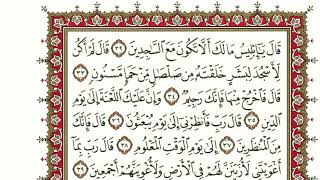 قَالَ يَٰٓإِبْلِيسُ مَا لَكَ أَلَّا تَكُونَ مَعَ ٱلسَّٰجِدِينَ ٣٢ قَالَ لَمْ أَكُن
لِّأَسْجُدَ لِبَشَرٍ خَلَقْتَهُۥ مِن صَلْصَٰلٍ مِّنْ حَمَإٍ مَّسْنُونٍ ٣٣
قَالَ فَٱخْرُجْ مِنْهَا فَإِنَّكَ رَجِيمٌ ٣٤ وَإِنَّ عَلَيْكَ ٱللَّعْنَةَ إِلَىٰ يَوْمِ
ٱلدِّينِ ٣٥ قَالَ رَبِّ فَأَنظِرْنِىٓ إِلَىٰ يَوْمِ يُبْعَثُونَ ٣٦ قَالَ فَإِنَّكَ
مِنَ ٱلْمُنظَرِينَ ٣٧ إِلَىٰ يَوْمِ ٱلْوَقْتِ ٱلْمَعْلُومِ ٣٨ قَالَ رَبِّ بِمَآ
أَغْوَيْتَنِى لَأُزَيِّنَنَّ لَهُمْ فِى ٱلْأَرْضِ وَلَأُغْوِيَنَّهُمْ أَجْمَعِينَ ٣٩